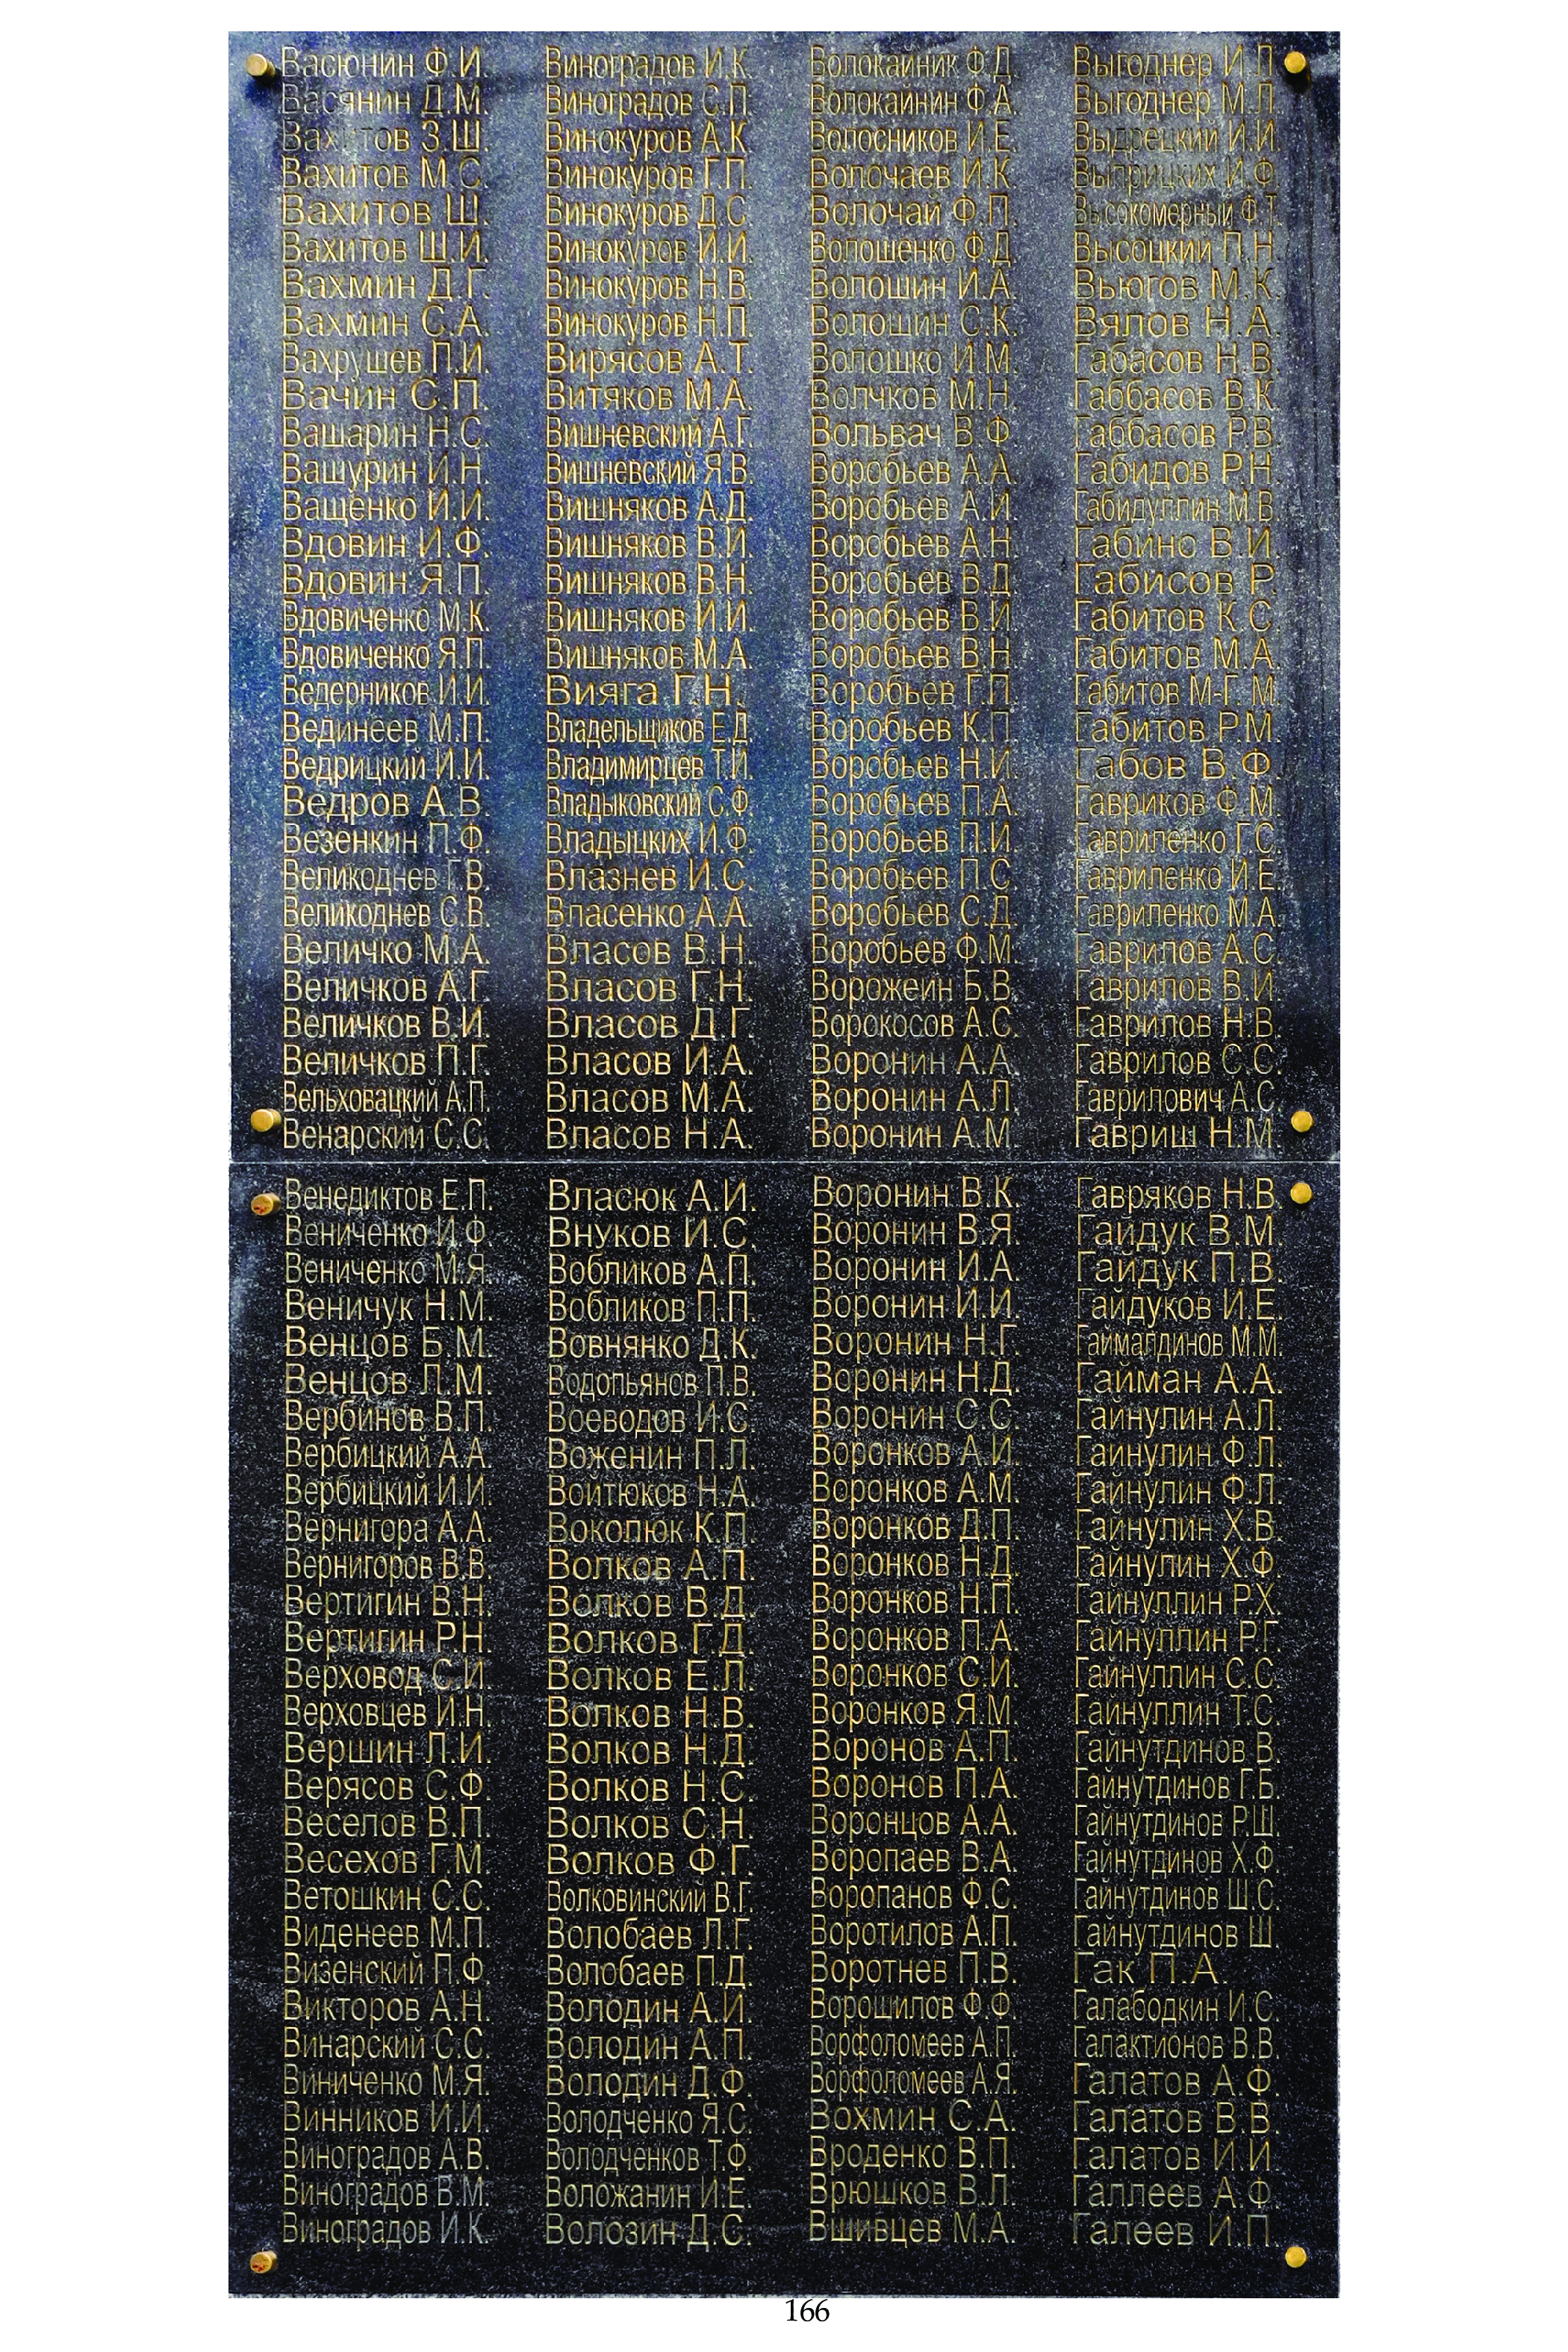 Васюнин Ф.И.
Васянин Д.М.
Вахитов З.Ш.
Вахитов М.С.
Вахитов Ш.
Вахитов Ш.И.
Вахмин Д.Г.
Вахмин С.А.
Вахрушев П.И.
Вачин С.П.
Вашарин Н.С.
Вашурин И.Н.
Ващенко И.И.
Вдовин И.Ф.
Вдовин Я.П.
Вдовиченко М.К.
Вдовиченко Я.П.
Ведерников И.И.
Вединеев М.П.
Ведрицкий И.И.
Ведров А.В.
Везенкин П.Ф.
Великоднев Г.В.
Великоднев С.В.
Величко М.А.
Величков А.Г.
Величков В.И.
Величков П.Г.
Вельховацкий А.П.
Венарский С.С.
Венедиктов Е.П.
Вениченко И.Ф.
Вениченко М.Я.
Веничук Н.М.
Венцов Б.М.
Венцов Л.М.
Вербинов В.П.
Вербицкий А.А.
Вербицкий И.И.
Вернигора А.А.
Вернигоров В.В.
Вертигин В.Н.
Вертигин Р.Н.
Верховод С.И.
Верховцев И.Н.
Вершин Л.И.
Верясов С.Ф.
Веселов В.П.
Весехов Г.М.
Ветошкин С.С.
Виденеев М.П.
Визенский П.Ф.
Викторов А.Н.
Винарский С.С.
Виниченко М.Я.
Винников И.И.
Виноградов А.В.
Виноградов В.М.
Виноградов И.К.
Виноградов И.К.
Виноградов С.П.
Винокуров А.К.
Винокуров Г.П.
Винокуров Д.С.
Винокуров И.И.
Винокуров Н.В.
Винокуров Н.П.
Вирясов А.Т.
Витяков М.А.
Вишневский А.Г.
Вишневский Я.В.
Вишняков А.Д.
Вишняков В.И.
Вишняков В.Н.
Вишняков И.И.
Вишняков М.А.
Вияга Г.Н.
Владельщиков Е.Д.
Владимирцев Т.И.
Владыковский С.Ф.
Владыцких И.Ф.
Влазнев И.С.
Власенко А.А.
Власов В.Н.
Власов Г.Н.
Власов Д.Г.
Власов И.А.
Власов М.А.
Власов Н.А.
Власюк А.И.
Внуков И.С.
Вобликов А.П.
Вобликов П.П.
Вовнянко Д.К.
Водопьянов П.В.
Воеводов И.С.
Воженин П.Л.
Войтюков Н.А.
Воколюк К.П.
Волков А.П.
Волков В.Д.
Волков Г.Д.
Волков Е.Л.
Волков Н.В.
Волков Н.Д.
Волков Н.С.
Волков С.Н.
Волков Ф.Г.
Волковинский В.Г.
Волобаев Л.Г.
Волобаев П.Д.
Володин А.И.
Володин А.П.
Володин Д.Ф.
Володченко Я.С.
Володченков Т.Ф.
Воложанин И.Е.
Волозин Д.С.
Волокайник Ф.Д.
Волокайнин Ф.А.
Волосников И.Е.
Волочаев И.К.
Волочай Ф.П.
Волошенко Ф.Д.
Волошин И.А.
Волошин С.К.
Волошко И.М.
Волчков М.Н.
Вольвач В.Ф.
Воробьев А.А.
Воробьев А.И.
Воробьев А.Н.
Воробьев В.Д.
Воробьев В.И.
Воробьев В.Н.
Воробьев Г.П.
Воробьев К.П.
Воробьев Н.И.
Воробьев П.А.
Воробьев П.И.
Воробьев П.С.
Воробьев С.Д.
Воробьев Ф.М.
Ворожеин Б.В.
Ворокосов А.С.
Воронин А.А.
Воронин А.Л.
Воронин А.М.
Воронин В.К.
Воронин В.Я.
Воронин И.А.
Воронин И.И.
Воронин Н.Г.
Воронин Н.Д.
Воронин С.С.
Воронков А.И.
Воронков А.М.
Воронков Д.П.
Воронков Н.Д.
Воронков Н.П.
Воронков П.А.
Воронков С.И.
Воронков Я.М.
Воронов А.П.
Воронов П.А.
Воронцов А.А.
Воропаев В.А.
Воропанов Ф.С.
Воротилов А.П.
Воротнев П.В.
Ворошилов Ф.Ф.
Ворфоломеев А.П.
Ворфоломеев А.Я.
Вохмин С.А.
Вроденко В.П.
Врюшков В.Л.
Вшивцев М.А.
Выгоднер И.Л.
Выгоднер М.Л.
Выдрецкий И.И.
Выприцких И.Ф.
Высокомерный Ф.Т.
Высоцкий П.Н.
Вьюгов М.К.
Вялов Н.А.
Габасов Н.В.
Габбасов В.К.
Габбасов Р.В.
Габидов Р.Н.
Габидуллин М.В.
Габино В.И.
Габисов Р.
Габитов К.С.
Габитов М.А.
Габитов М-Г. М.
Габитов Р.М.
Габов В.Ф.
Гавриков Ф.М.
Гавриленко Г.С.
Гавриленко И.Е.
Гавриленко М.А.
Гаврилов А.С.
Гаврилов Б.И.
Гаврилов Н.В.
Гаврилов С.С.
Гаврилович А.С.
Гавриш Н.М.
Гавряков Н.В.
Гайдук В.М.
Гайдук П.В.
Гайдуков И.Е.
Гаймалдинов М.М.
Гайман А.А.
Гайнулин А.Л.
Гайнулин Ф.Л.
Гайнулин Ф.Л.
Гайнулин Х.В.
Гайнулин Х.Ф.
Гайнуллин Р.Х.
Гайнуллин Р.Г.
Гайнуллин С.С.
Гайнуллин Т.С.
Гайнутдинов В.
Гайнутдинов Г.Б.
Гайнутдинов Р.Ш.
Гайнутдинов Х.Ф.
Гайнутдинов Ш.С.
Гайнутдинов Ш.
Гак П.А.
Галабодкин И.С.
Галактионов В.В.
Галатов А.Ф.
Галатов В.В.
Галатов И.И.
Галлеев А.Ф.
Галеев И.П.
166